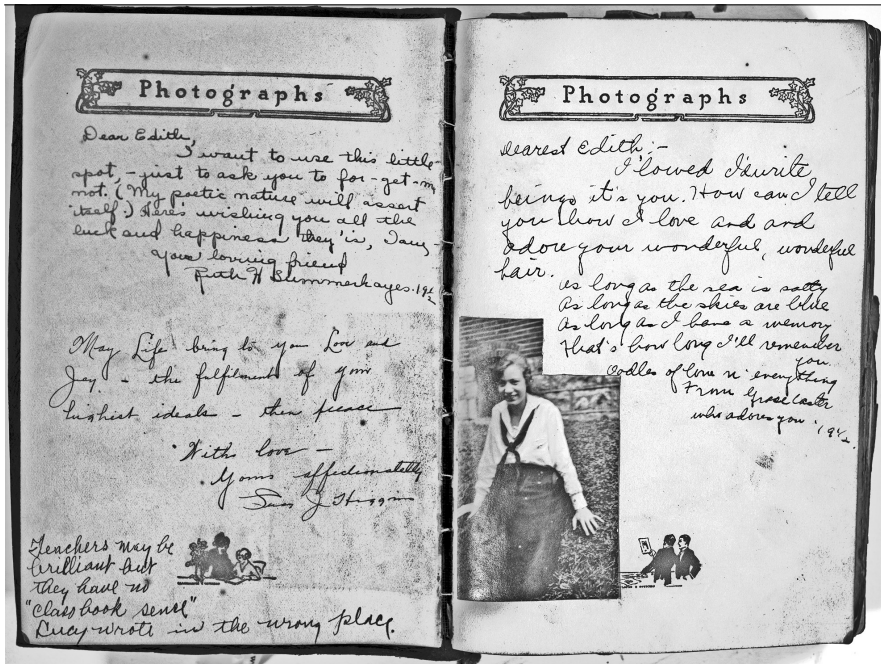 Photographs
Dear Edith,
I want to use this little
spot, - just to ask you to for-get-me
not. (My poetic nature will assert
itself.) Here's wishing you all the
luck and happiness they is, I am,
Your loving friend
Ruth H Summerhayes. 19½
May Life bring to you Love and
Joy - the fulfilment of your
highest ideals - then peace
With love -
Yours affectionately
J Higgins
Teachers may be
brilliant but
they have no
"class book sense"
Lucy wrote in the wrong place.
Photographs
Dearest Edith:-
I lowed I'd write
being's it's you. How can I tell
you how I love and and
adore your wonderful, wonderful
hair.
As long as the sea is salty
As long as the skies are blue
As long as I have a memory
That's how long I'll remember
you.
Oodles of love n' everything
From Grace Caster
who adores you. 19½